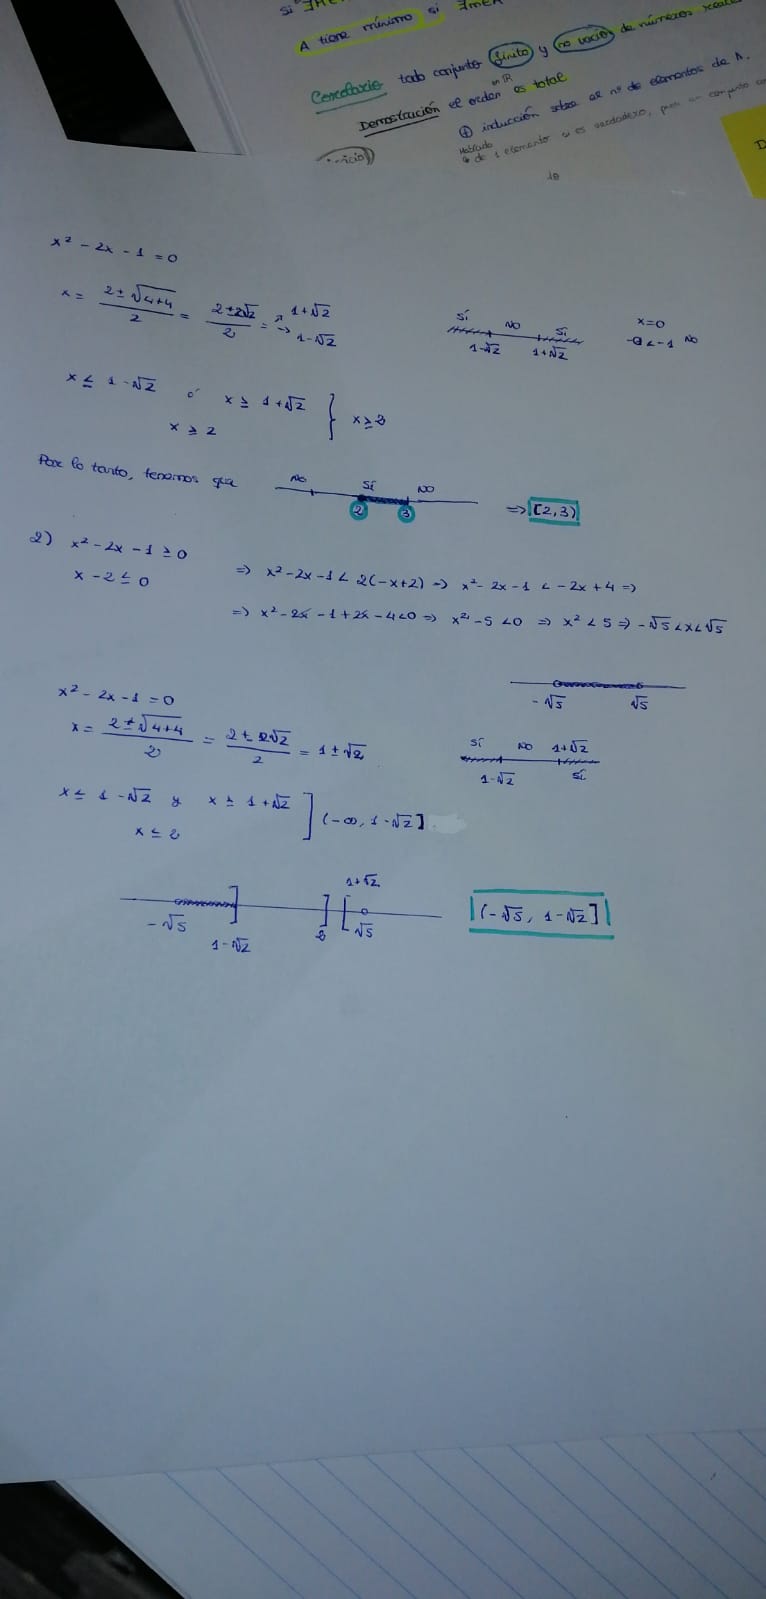 Si ∃ME
A tiene mínimo si ∃m∈A
Corolario todo conjunto finito y no vacío de números reales
Demostración el orden en ℝ es total
⊕ inducción sobre el nº de elementos de A.
inicio
Hablado
de 1 elemento si es verdadero, pues un conjunto
x² - 2x - 1 = 0
x = (2 ± √(4+4))/2 = (2 ± 2√2)/2 = ↗ 1+√2 → 1-√2
SÍ NO SÍ
1-√2 1+√2
x=0
-0 < -1 NO
x ≤ 1 - √2 ó x ≥ 1 + √2
x ≥ 2 } x ≥ 3
Por lo tanto, tenemos que NO SÍ NO
2 3 => [2,3)
2) x² - 2x - 1 ≥ 0
x - 2 ≤ 0
=> x² - 2x - 1 < 2(-x+2) => x² - 2x - 1 < -2x + 4 =>
=> x² - 2x - 1 + 2x - 4 < 0 => x² - 5 < 0 => x² < 5 => -√5 < x < √5
-√5 √5
x² - 2x - 1 = 0
x = (2 ± √(4+4))/2 = (2 ± 2√2)/2 = 1 ± √2
SÍ NO 1+√2
1-√2 SÍ
x ≤ 1 - √2 y x ≥ 1 + √2
x ≤ 2 ] (-∞, 1-√2]
1+√2
-√5 1-√2 2 √5
(-√5, 1-√2]